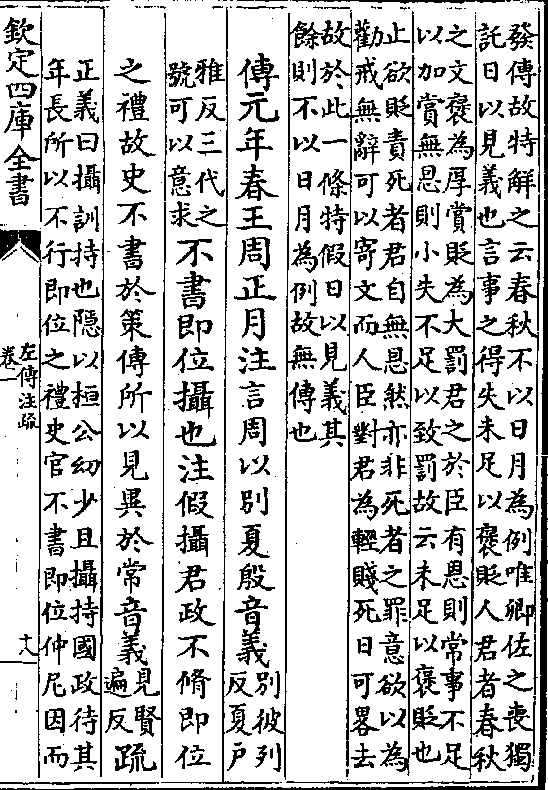 發傳故特解之云春秋不以日月為例唯卿佐之喪獨
託日以見義也言事之得失未足以褒貶人君者春秋
之文褒為厚賞貶為大罰君之於臣有恩則常事不足
以加賞無恩則小失不足以致罰故云未足以褒貶也
止欲貶責死者君自無恩然亦非死者之罪意欲以為
勸戒無辭可以寄文而人臣對君為輕賤死日可畧去
故於此一條特假日以見義其
餘則不以日月為例故無傳也
傳元年春王周正月注言周以別夏殷音義別彼列
反夏户
雅反三代之
號可以意求不書即位攝也注假攝君政不脩即位
之禮故史不書於策傳所以見異於常音義見賢
遍反疏
正義曰攝訓持也隱以桓公幼少且攝持國政待其
年長所以不行即位之禮史官不書即位仲尼因而
欽定四庫全書
左傳注疏
卷一
十八